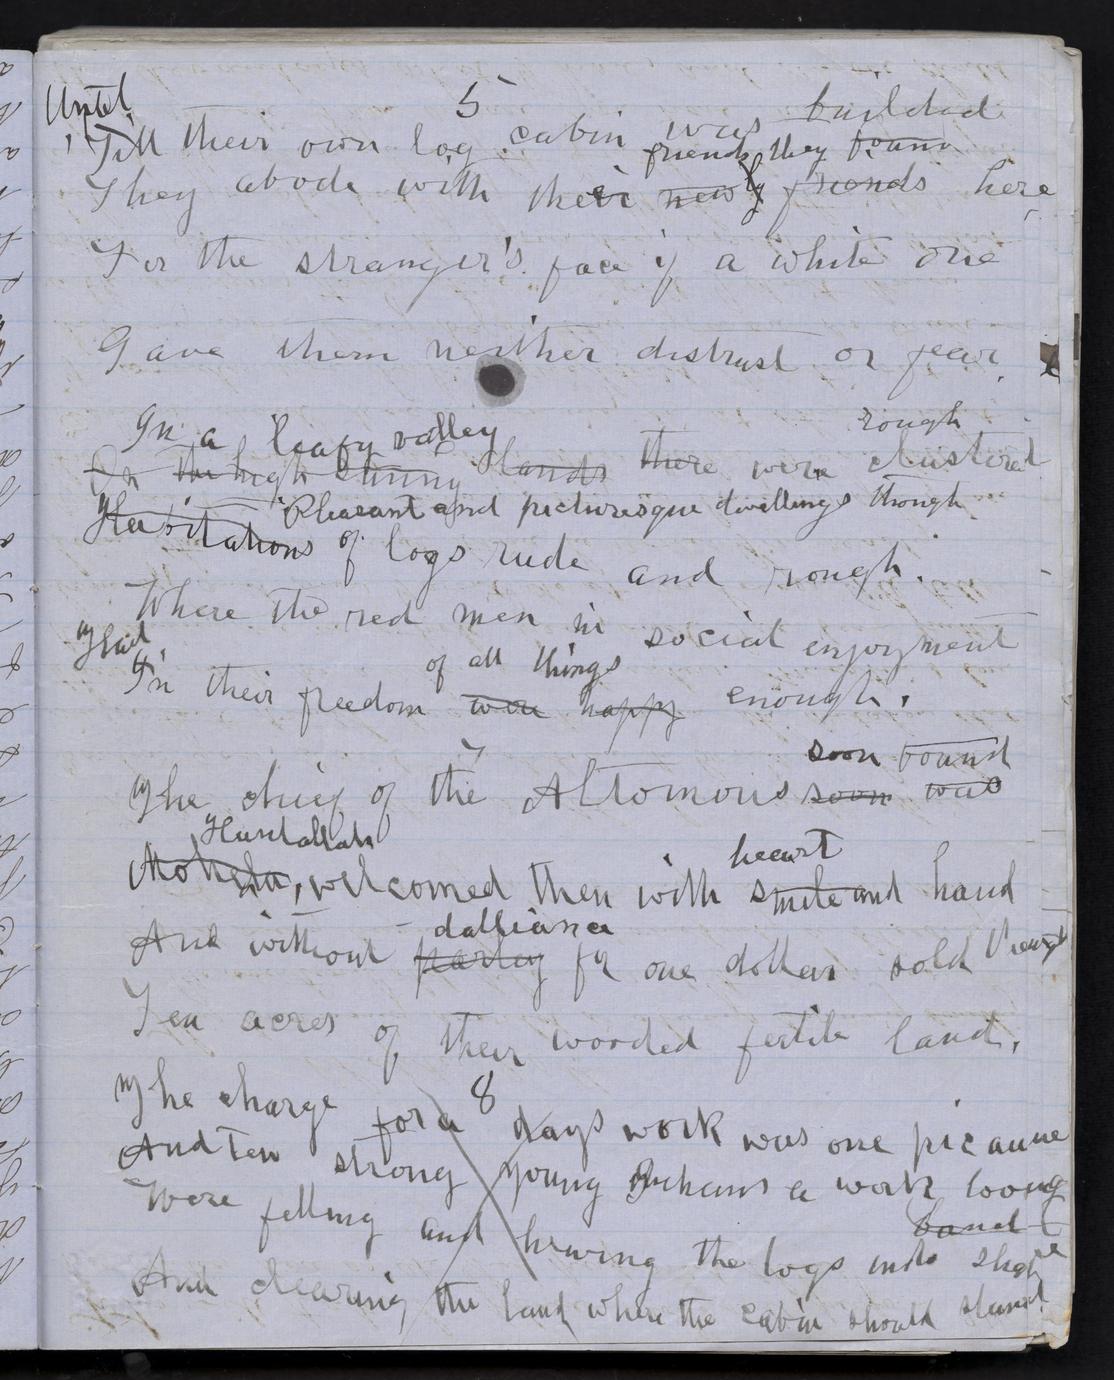 Until
5
Till their own log cabin was builded
friends they found
They abode with their new friends here
For the stranger's face if a white one
Gave them neither distrust or fear.
In a leafy valley rough
On the high sunny lands there were clustered
Pleasant and picturesque dwellings though
Habitations of logs rude and rough.
Where the red men in social enjoyment
Glad of all things
In their freedom were happy enough.
7
soon found
The chief of the Altomous soon was
Huntallah heart
welcomed then with smile and hand
dalliance
And without parley for one dollar sold
Ten acres of their wooded fertile land.
8
The charge for a days work was one picaune
And ten strong young a work
band
Were felling and hewing the logs into shape
And clearing the land where the cabin should stand.